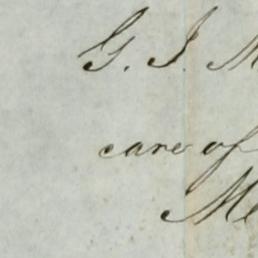 G. J. M
care of
Me